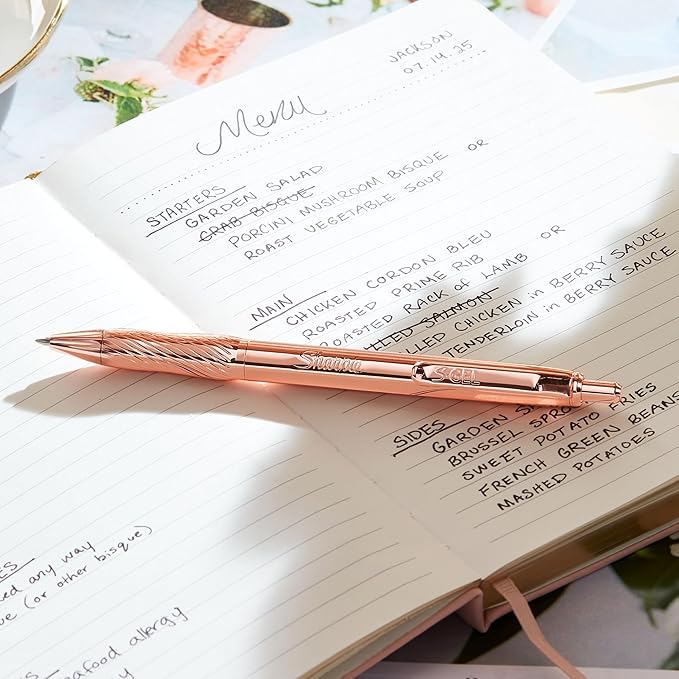 JACKSON
07.14.25
Menu
STARTERS
GARDEN SALAD
CRAB BISQUE
PORCINI MUSHROOM BISQUE OR
ROAST VEGETABLE SOUP
MAIN
CHICKEN CORDON BLEU
ROASTED PRIME RIB
ROASTED RACK OF LAMB OR
LLED SALMON
LLED CHICKEN in BERRY SAUCE
TENDERLOIN in BERRY SAUCE
SIDES
GARDEN
BRUSSEL SPROU
SWEET POTATO FRIES
FRENCH GREEN BEANS
MASHED POTATOES
Sharpie
S·GEL
any way
(or other bisque)
allergy